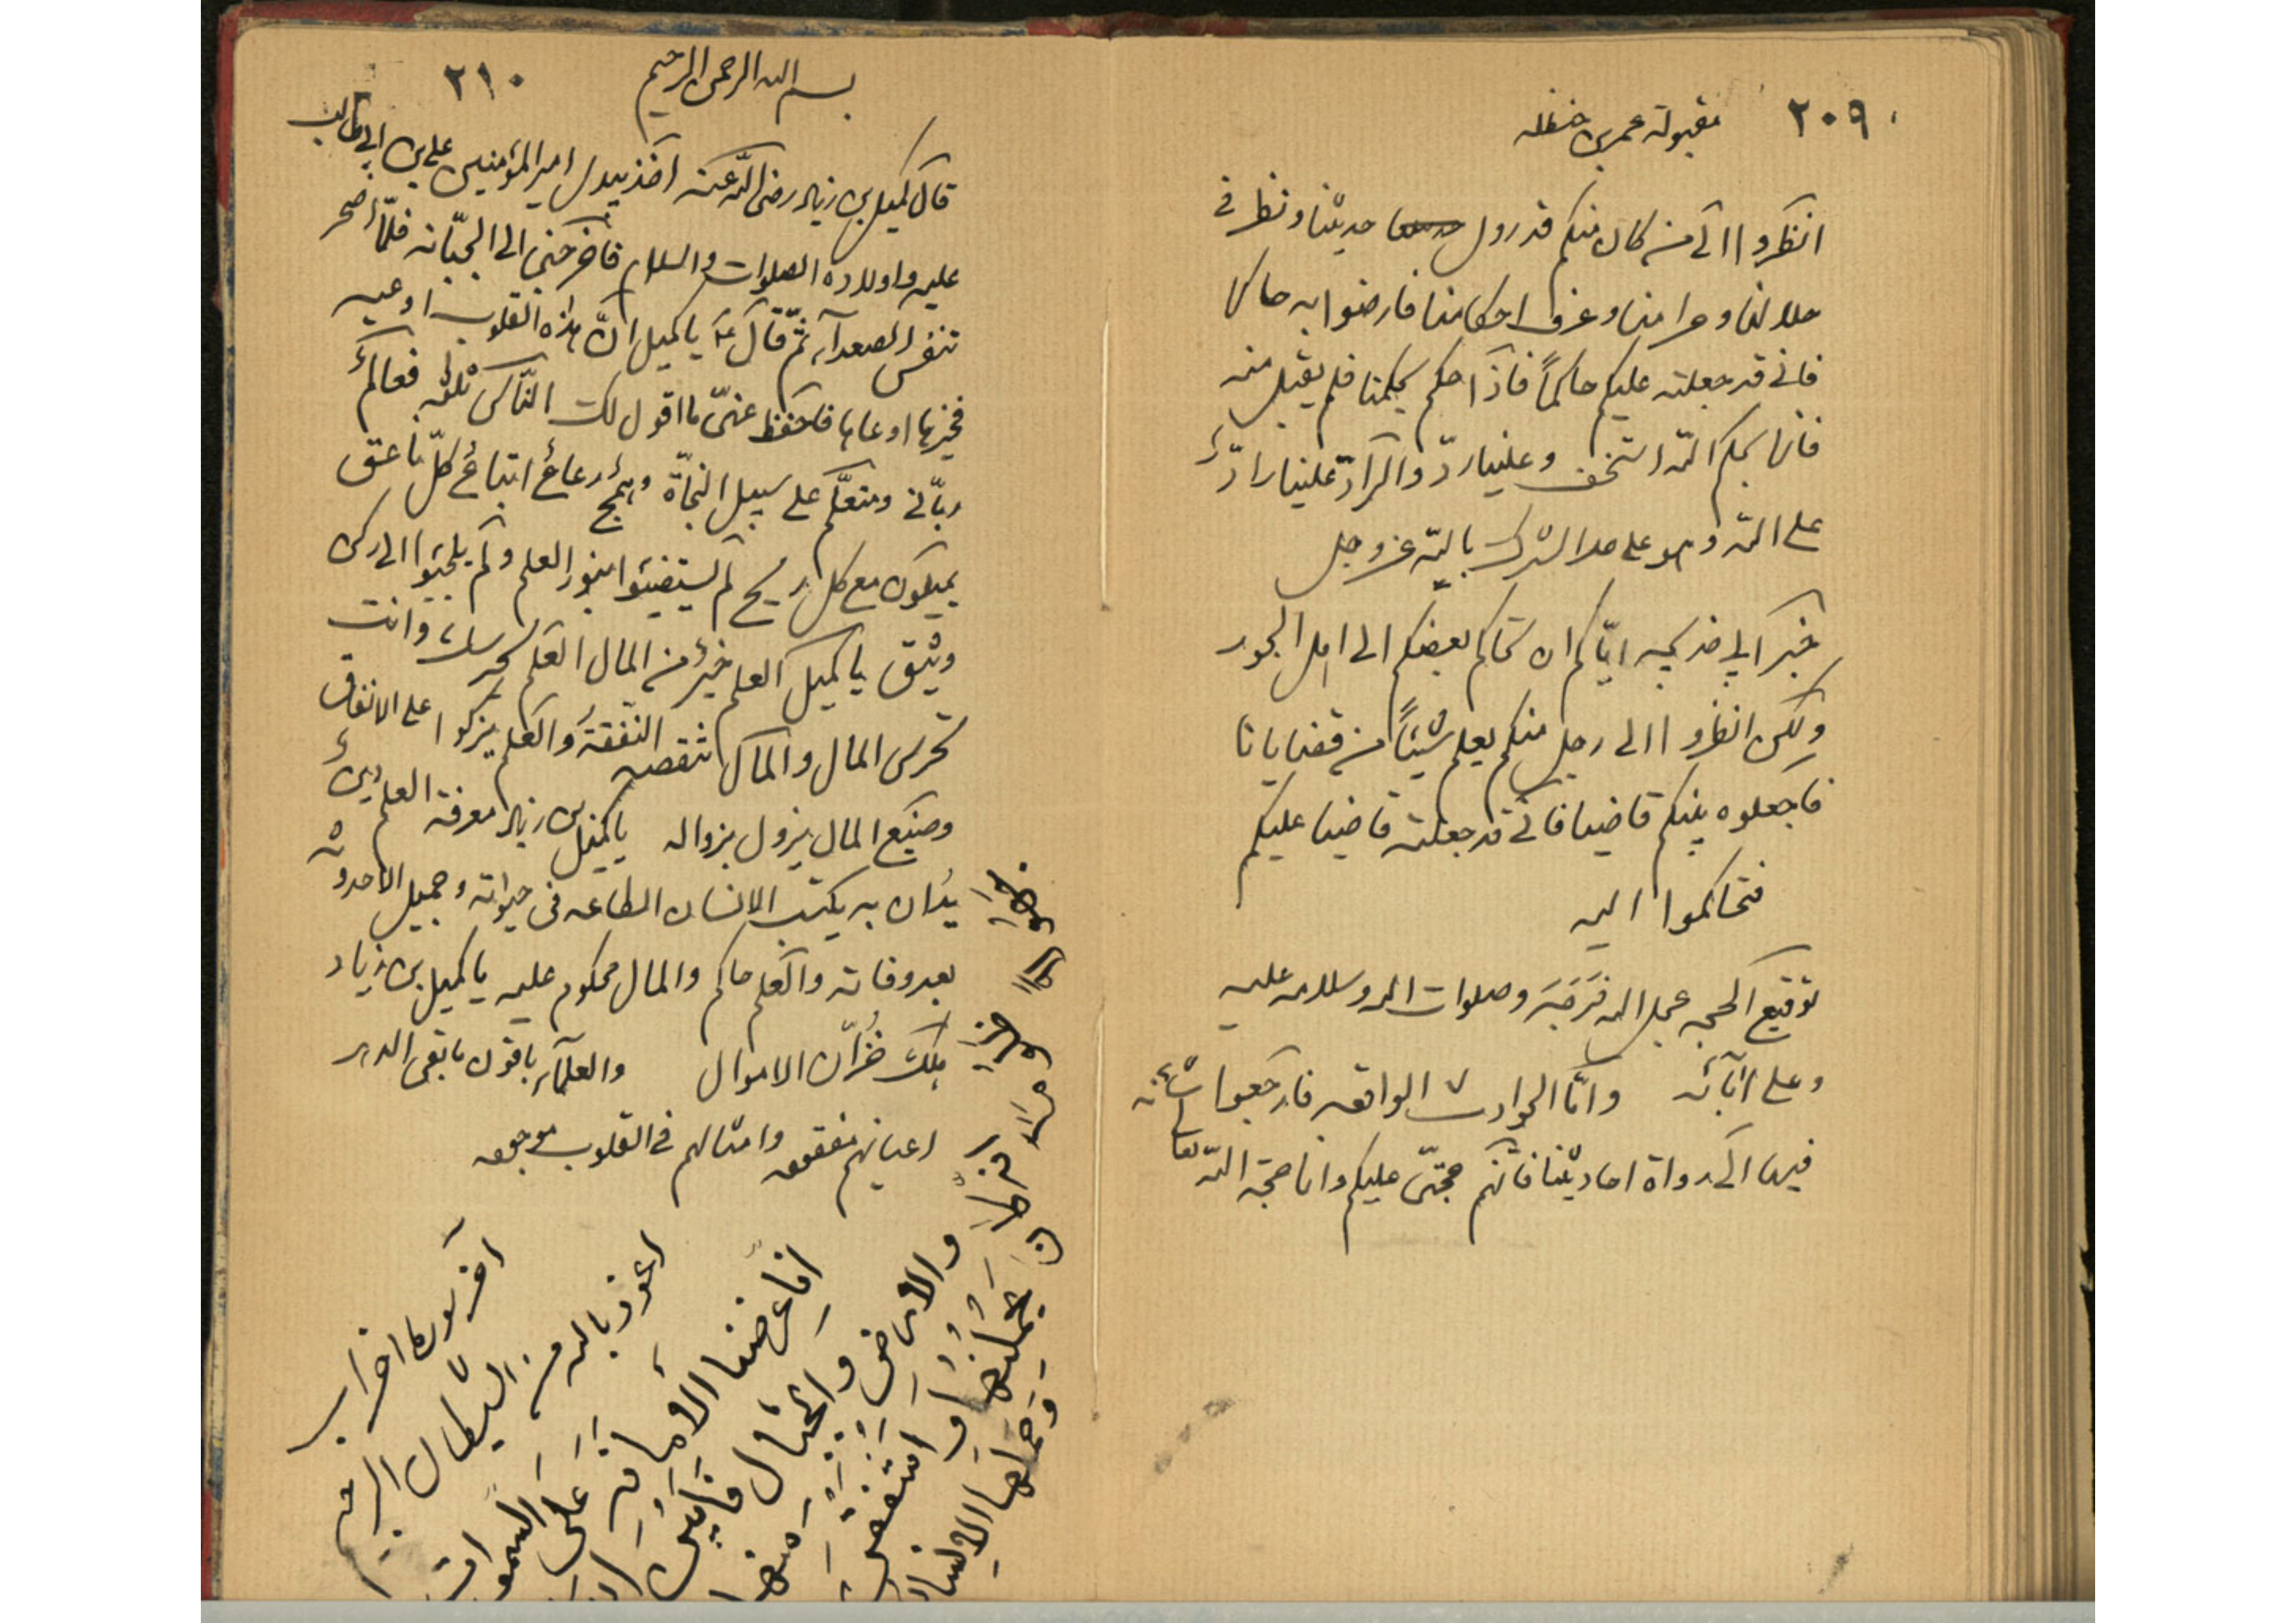 ٢٠٩ مقبولة عمر بن حنظله
انظروا الی من كان منكم قد روى حديثنا و نظر فی
حلالنا و حرامنا و عرف احكامنا فارضوا به حاكما
فانی قد جعلته عليكم حاكماً فاذا حكم بحكمنا فلم يقبل منه
فانما بحكم اللّه استخف و علينا ردّ و الرادّ علينا رادٌّ
علی اللّه و هو علی حد الشرك باللّه عز و جل
خبر ابی خديجه ایّاكم ان يحاكم بعضكم الی اهل الجور
و لكن انظروا الی رجل منكم يعلم شيئاً من قضايانا
فاجعلوه بينكم قاضيا فانی قد جعلته قاضيا عليكم
فتحاكموا اليه
توقيع الحجه عجل الله فَرَجَه و صلوات الله و سلامه عليه
و علی آبائه و امّا الحوادث الواقعه فارجعوا
فيها الی رواة احاديثنا فانّهم حجّتی عليكم و انا حجة اللّه
٢١٠ بسم الله الرحمن الرحيم
قال كميل بن زياد رضی اللّه عنه اخذ بيدی امير المؤمنين علی بن ابی طالب
عليه و اولاده الصلوات و السلام فاخرجنی الی الجبّانه فلمّا اصحر
تنفس الصعدآء ثمّ قال يا كميل انّ هذه القلوب اوعيه
فخيرها اوعاها فاحفظ عنّی ما اقول لك النّاس ثلثه فعالمٌ
ربّانی و متعلّم علی سبيل النجاة و همجٌ رعاعٌ اتباعُ كلّ ناعق
يميلون مع كل ريح لم يستضيئوا بنور العلم و لم يلجئوا الی ركن
وثيق يا كميل العلم خيرٌ من المال العلم يحرسك و انت
تحرس المال و المال تنقصه النّفقةُ و العلم يزكوا علی الانفاق
و صنيع المال يزول بزواله يا كميل بن زياد معرفة العلم دينٌ
يُدان به يكتسب الانسان الطاعه فی حيوته و جميل الاحدوثه
بعد وفاته و العلم حاكم و المال محكوم عليه يا كميل بن زياد
هلك خُزّان الاموال و العلمآء باقون ما بقی الدهر
اعيانهم مفقوده و امثالهم فی القلوب موجوده
آخر سوره احزاب
اعوذ بالله من الشيطان الرجيم
انا عرضنا الأمانة عَلَی السموات
و الارض و الجبال فابَينَ ان
يَحمِلنَها و اشفقن منها
وَ حَمَلَها الانسان